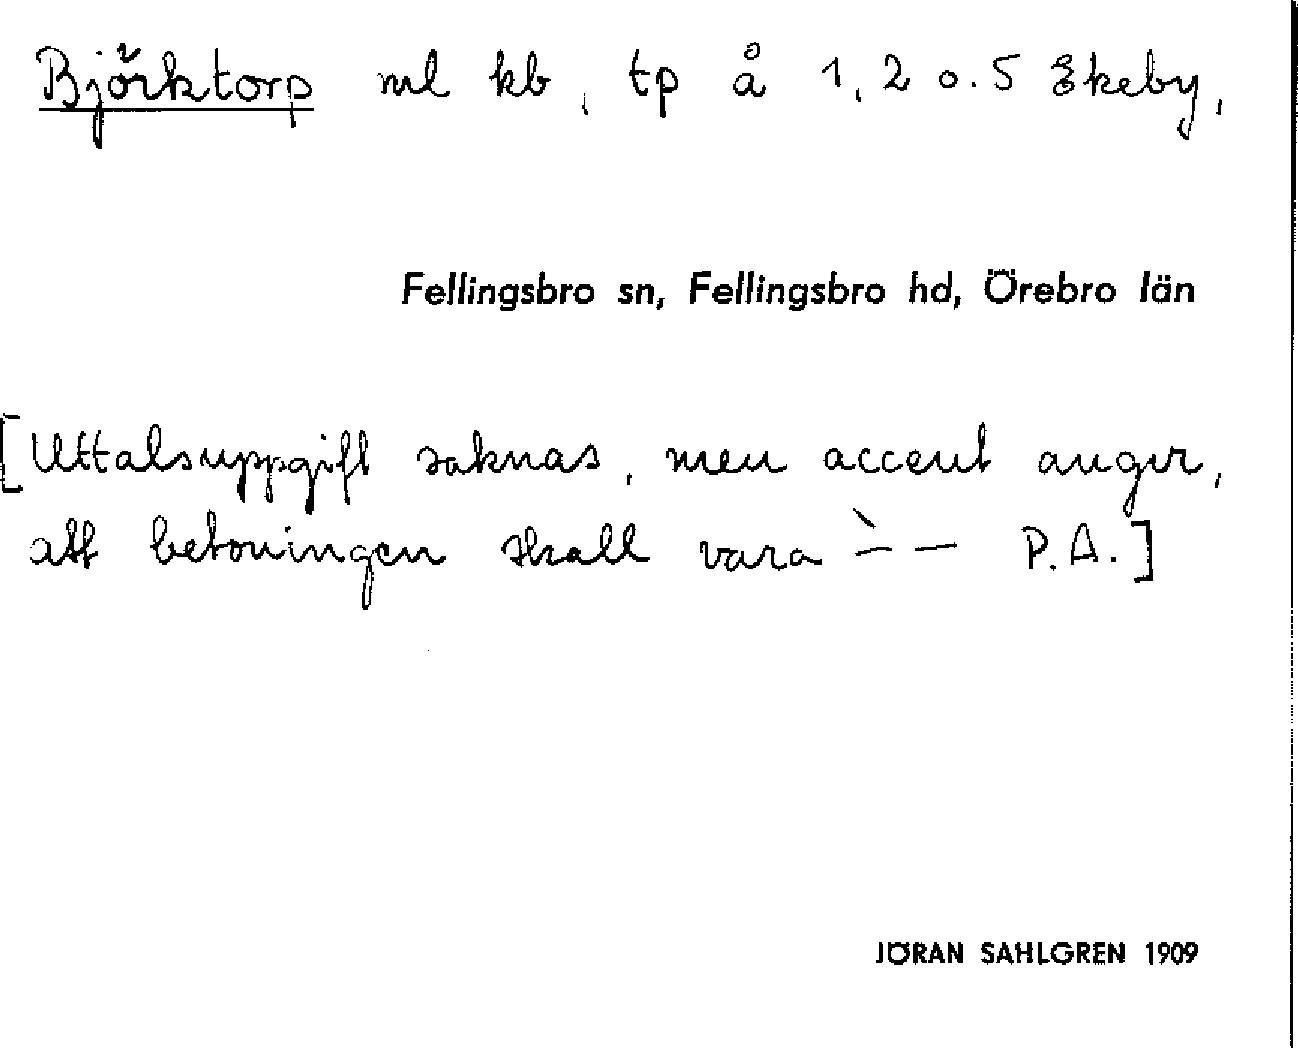 Björktorp ml kb, tp å 1, 2 o. 5 Ekeby,
Fellingsbro sn, Fellingsbro hd, Örebro län
[Uttalsuppgift saknas, men accent anger,
att betoningen skall vara ˋ– – P.A.]
JÖRAN SAHLGREN 1909